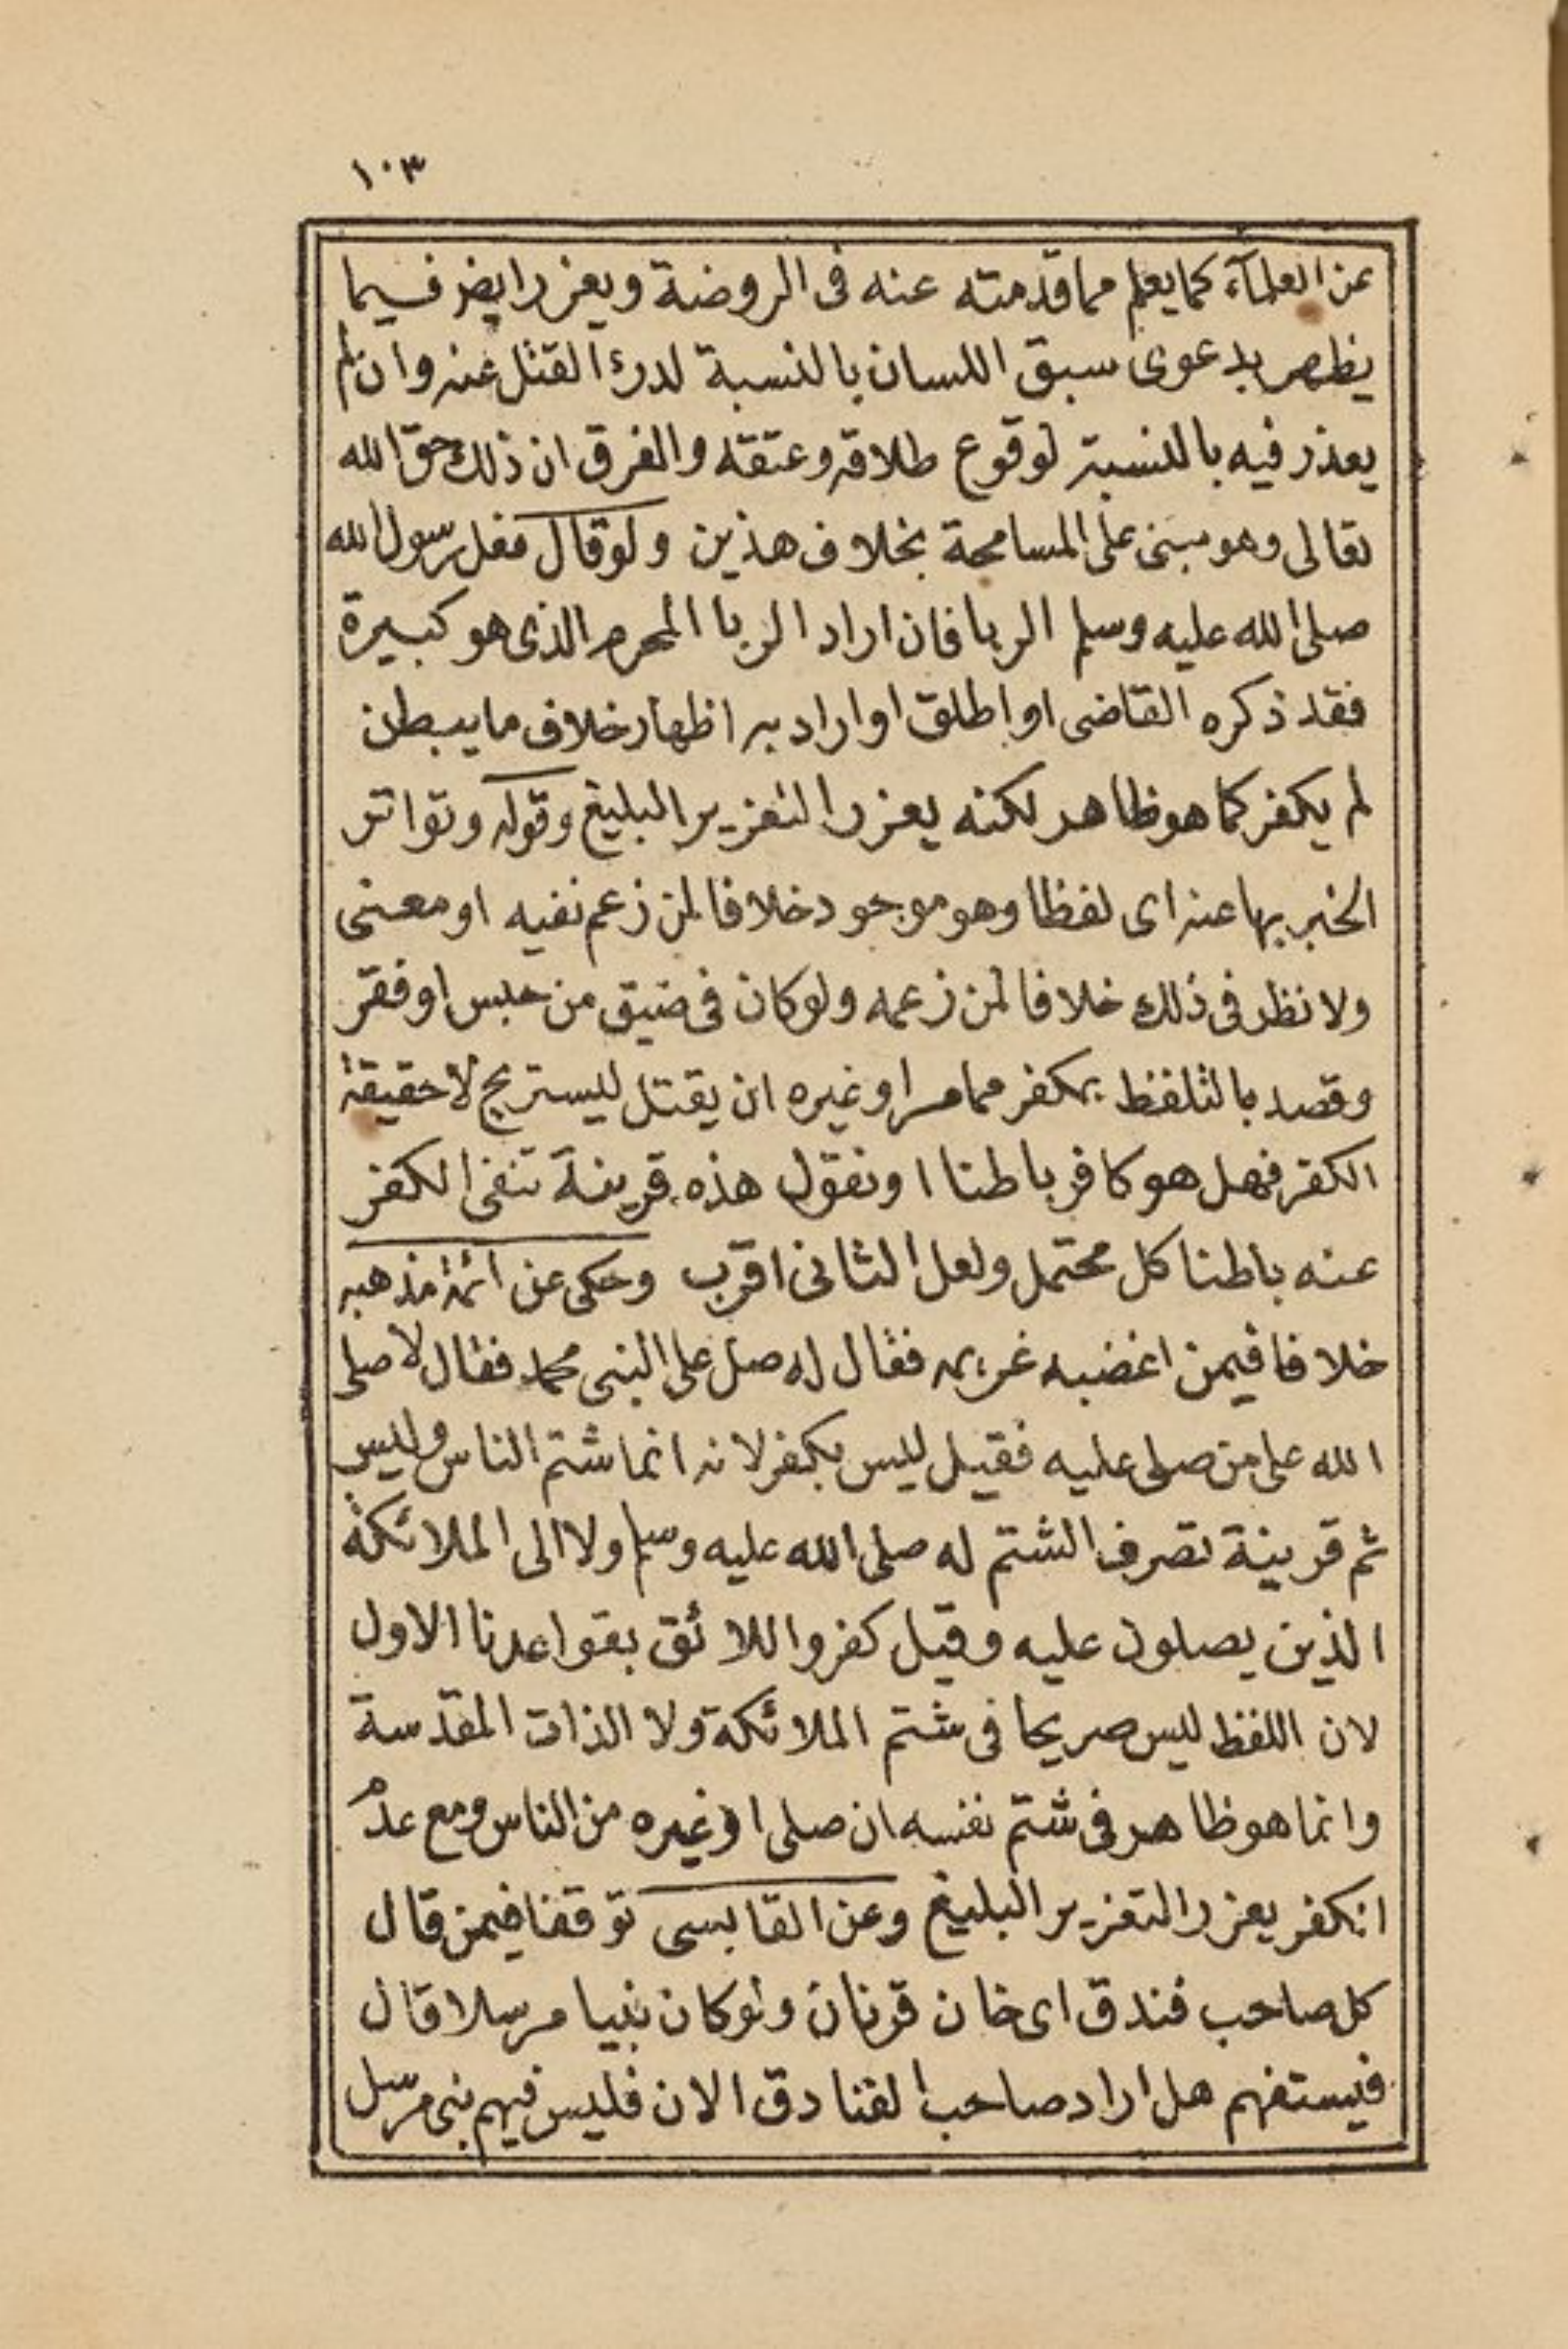 ١٠٣
عن العلمآء كما يعلم مما قدمته عنه فى الروضة ويعزر ايضر فيما
يظهر بدعوى سبق اللسان بالنسبة لدرء القتل عنه وان لم
يعذر فيه بالنسبة لوقوع طلاقه وعتقه والفرق ان ذلك حق الله
تعالى وهو مبنى على المسامحة بخلاف هذين ولو قال فعل رسول الله
صلى الله عليه وسلم الربا فان اراد الربا المحرم الذى هو كبيرة
فقد ذكره القاضى او اطلق او اراد به اظهار خلاف ما يبطن
لم يكفر كما هو ظاهر لكنه يعزر التعزير البليغ وقوله وتواتر
الخبر بها عنه اى لفظا وهو موجود خلافا لمن زعم نفيه او معنى
ولا نظر فى ذلك خلافا لمن زعمه ولو كان فى ضيق من حبس او فقر
وقصد بالتلفظ بمكفر مما مر او غيره ان يقتل ليستريح لا حقيقة
الكفر فهل هو كافر باطنا او نقول هذه قرينة تنفى الكفر
عنه باطنا كل محتمل ولعل الثانى اقرب وحكى عن ائمة مذهبه
خلافا فيمن اغضبه غريمه فقال له صل على النبى محمد فقال لا صلى
الله على من صلى عليه فقيل ليس بكفر لانه انما شتم الناس وليس
ثم قرينة تصرف الشتم له صلى الله عليه وسلم ولا الى الملائكة
الذين يصلون عليه وقيل كفر واللائق بقواعدنا الاول
لان اللفظ ليس صريحا فى شتم الملائكة ولا الذات المقدسة
وانما هو ظاهر فى شتم نفسه ان صلى او غيره من الناس ومع عدم
الكفر يعزر التعزير البليغ وعن القابسى توقفنا فيمن قال
كل صاحب فندق اى خان قرنان ولو كان نبيا مرسلا قال
فيستفهم هل اراد صاحب الفنادق الان فليس فيهم نبى مرسل